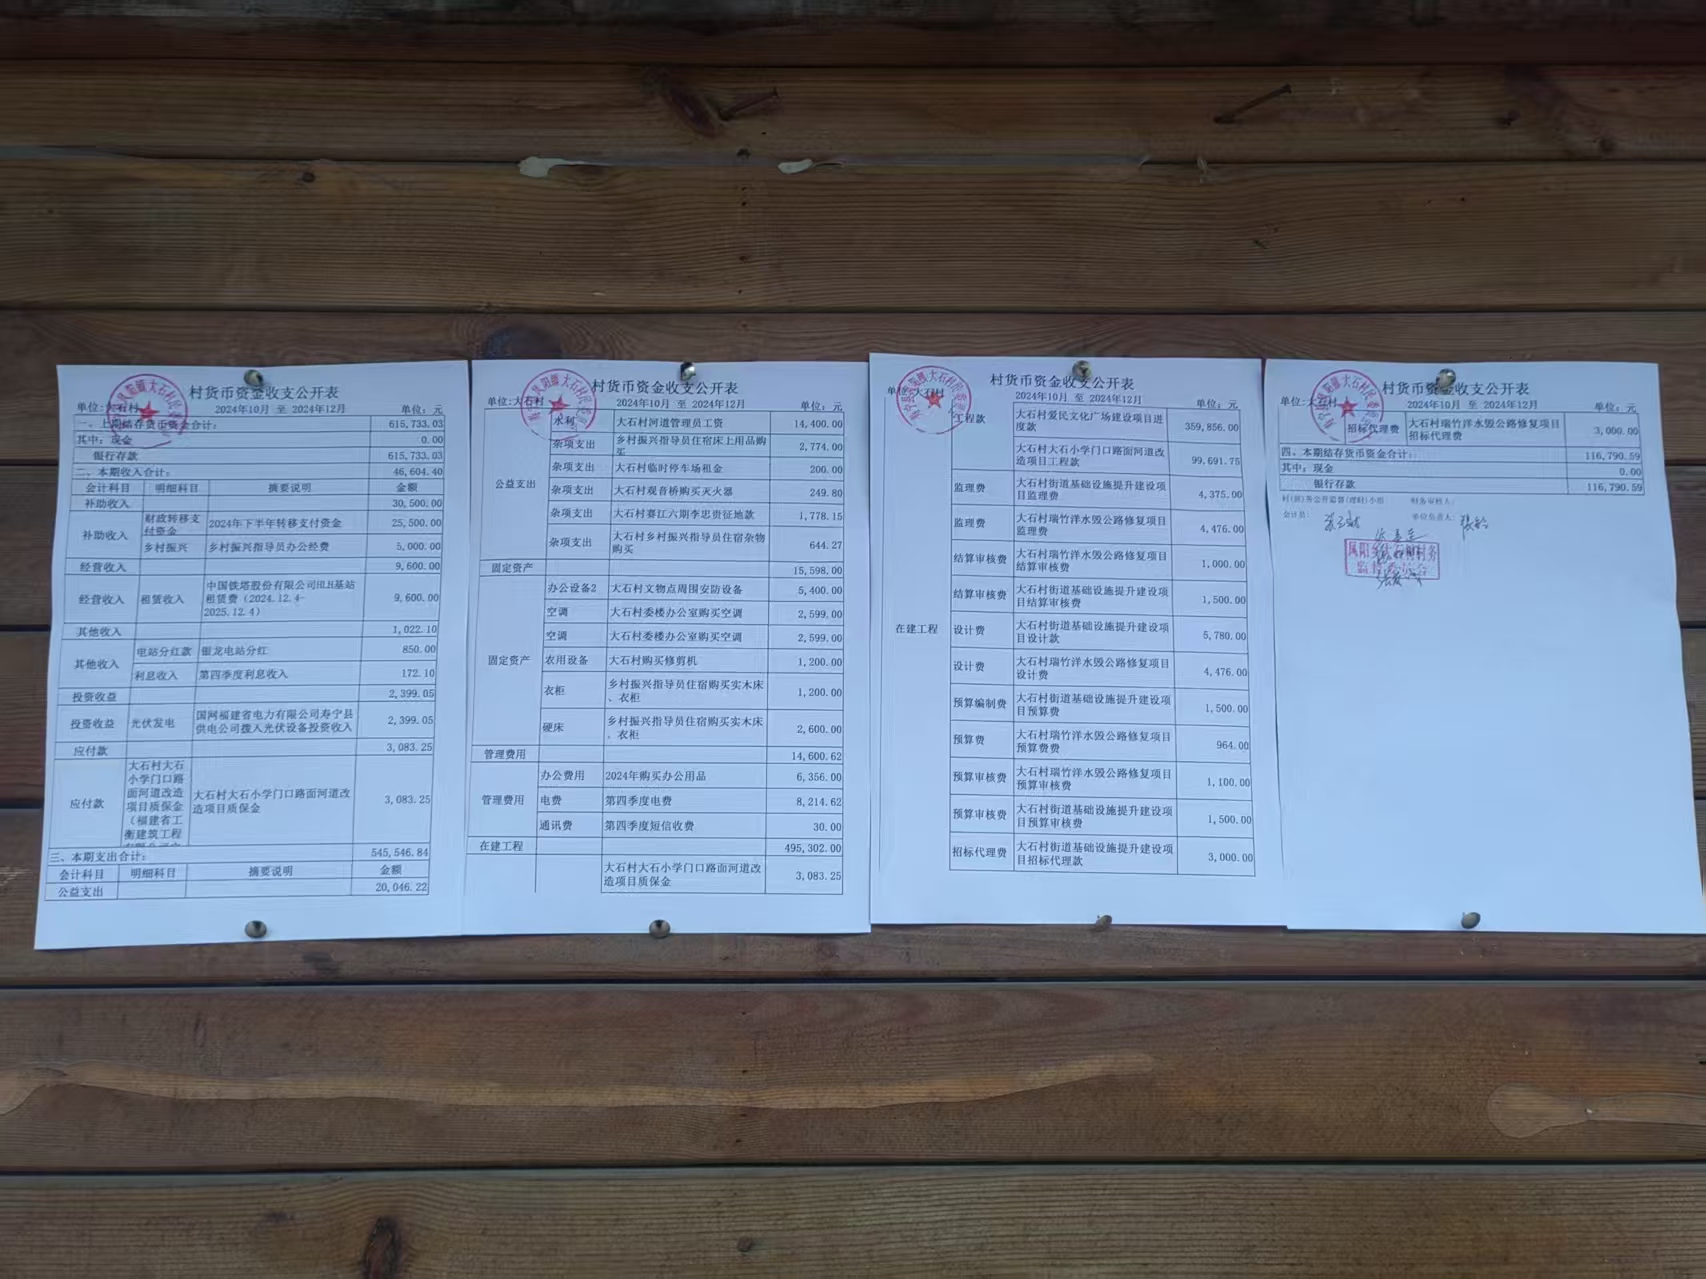 村货币资金收支公开表
单位:大石村 2024年10月 至 2024年12月 单位: 元
一、上期结存货币资金合计: 615,733.03
其中: 现金 0.00
银行存款 615,733.03
二、本期收入合计: 46,604.40
会计科目 明细科目 摘要说明 金额
补助收入 30,500.00
补助收入 财政转移支付资金 2024年下半年转移支付资金 25,500.00
乡村振兴 乡村振兴指导员办公经费 5,000.00
经营收入 9,600.00
经营收入 租赁收入 中国铁塔股份有限公司HLH基站租赁费（2024.12.4-2025.12.4） 9,600.00
其他收入 1,022.10
其他收入 电站分红款 银龙电站分红 850.00
利息收入 第四季度利息收入 172.10
投资收益 2,399.05
投资收益 光伏发电 国网福建省电力有限公司寿宁县供电公司拨入光伏设备投资收入 2,399.05
应付款 3,083.25
应付款 大石村大石小学门口路面河道改造项目质保金（福建省工衡建筑工程 大石村大石小学门口路面河道改造项目质保金 3,083.25
三、本期支出合计: 545,546.84
会计科目 明细科目 摘要说明 金额
公益支出 20,046.22
村货币资金收支公开表
单位:大石村 2024年10月 至 2024年12月 单位: 元
公益支出 水利 大石村河道管理员工资 14,400.00
杂项支出 乡村振兴指导员住宿床上用品购买 2,774.00
杂项支出 大石村临时停车场租金 200.00
杂项支出 大石村观音桥购买灭火器 249.80
杂项支出 大石村赛江六期李忠贵征地款 1,778.15
杂项支出 大石村乡村振兴指导员住宿杂物购买 644.27
固定资产 15,598.00
固定资产 办公设备2 大石村文物点周围安防设备 5,400.00
空调 大石村委楼办公室购买空调 2,599.00
空调 大石村委楼办公室购买空调 2,599.00
农用设备 大石村购买修剪机 1,200.00
衣柜 乡村振兴指导员住宿购买实木床、衣柜 1,200.00
硬床 乡村振兴指导员住宿购买实木床、衣柜 2,600.00
管理费用 14,600.62
管理费用 办公费用 2024年购买办公用品 6,356.00
电费 第四季度电费 8,214.62
通讯费 第四季度短信收费 30.00
在建工程 495,302.00
大石村大石小学门口路面河道改造项目质保金 3,083.25
村货币资金收支公开表
单位:大石村 2024年10月 至 2024年12月 单位: 元
在建工程 工程款 大石村爱民文化广场建设项目进度款 359,856.00
大石村大石小学门口路面河道改造项目工程款 99,691.75
监理费 大石村街道基础设施提升建设项目监理费 4,375.00
监理费 大石村瑞竹洋水毁公路修复项目监理费 4,476.00
结算审核费 大石村瑞竹洋水毁公路修复项目结算审核费 1,000.00
结算审核费 大石村街道基础设施提升建设项目结算审核费 1,500.00
设计费 大石村街道基础设施提升建设项目设计款 5,780.00
设计费 大石村瑞竹洋水毁公路修复项目设计费 4,476.00
预算编制费 大石村街道基础设施提升建设项目预算费 1,500.00
预算费 大石村瑞竹洋水毁公路修复项目预算费费 964.00
预算审核费 大石村瑞竹洋水毁公路修复项目预算审核费 1,100.00
预算审核费 大石村街道基础设施提升建设项目预算审核费 1,500.00
招标代理费 大石村街道基础设施提升建设项目招标代理款 3,000.00
村货币资金收支公开表
单位:大石村 2024年10月 至 2024年12月 单位: 元
招标代理费 大石村瑞竹洋水毁公路修复项目招标代理费 3,000.00
四、本期结存货币资金合计: 116,790.59
其中: 现金 0.00
银行存款 116,790.59
村(居)务公开监督(理财)小组 财务审核人:
会计员: 单位负责人: